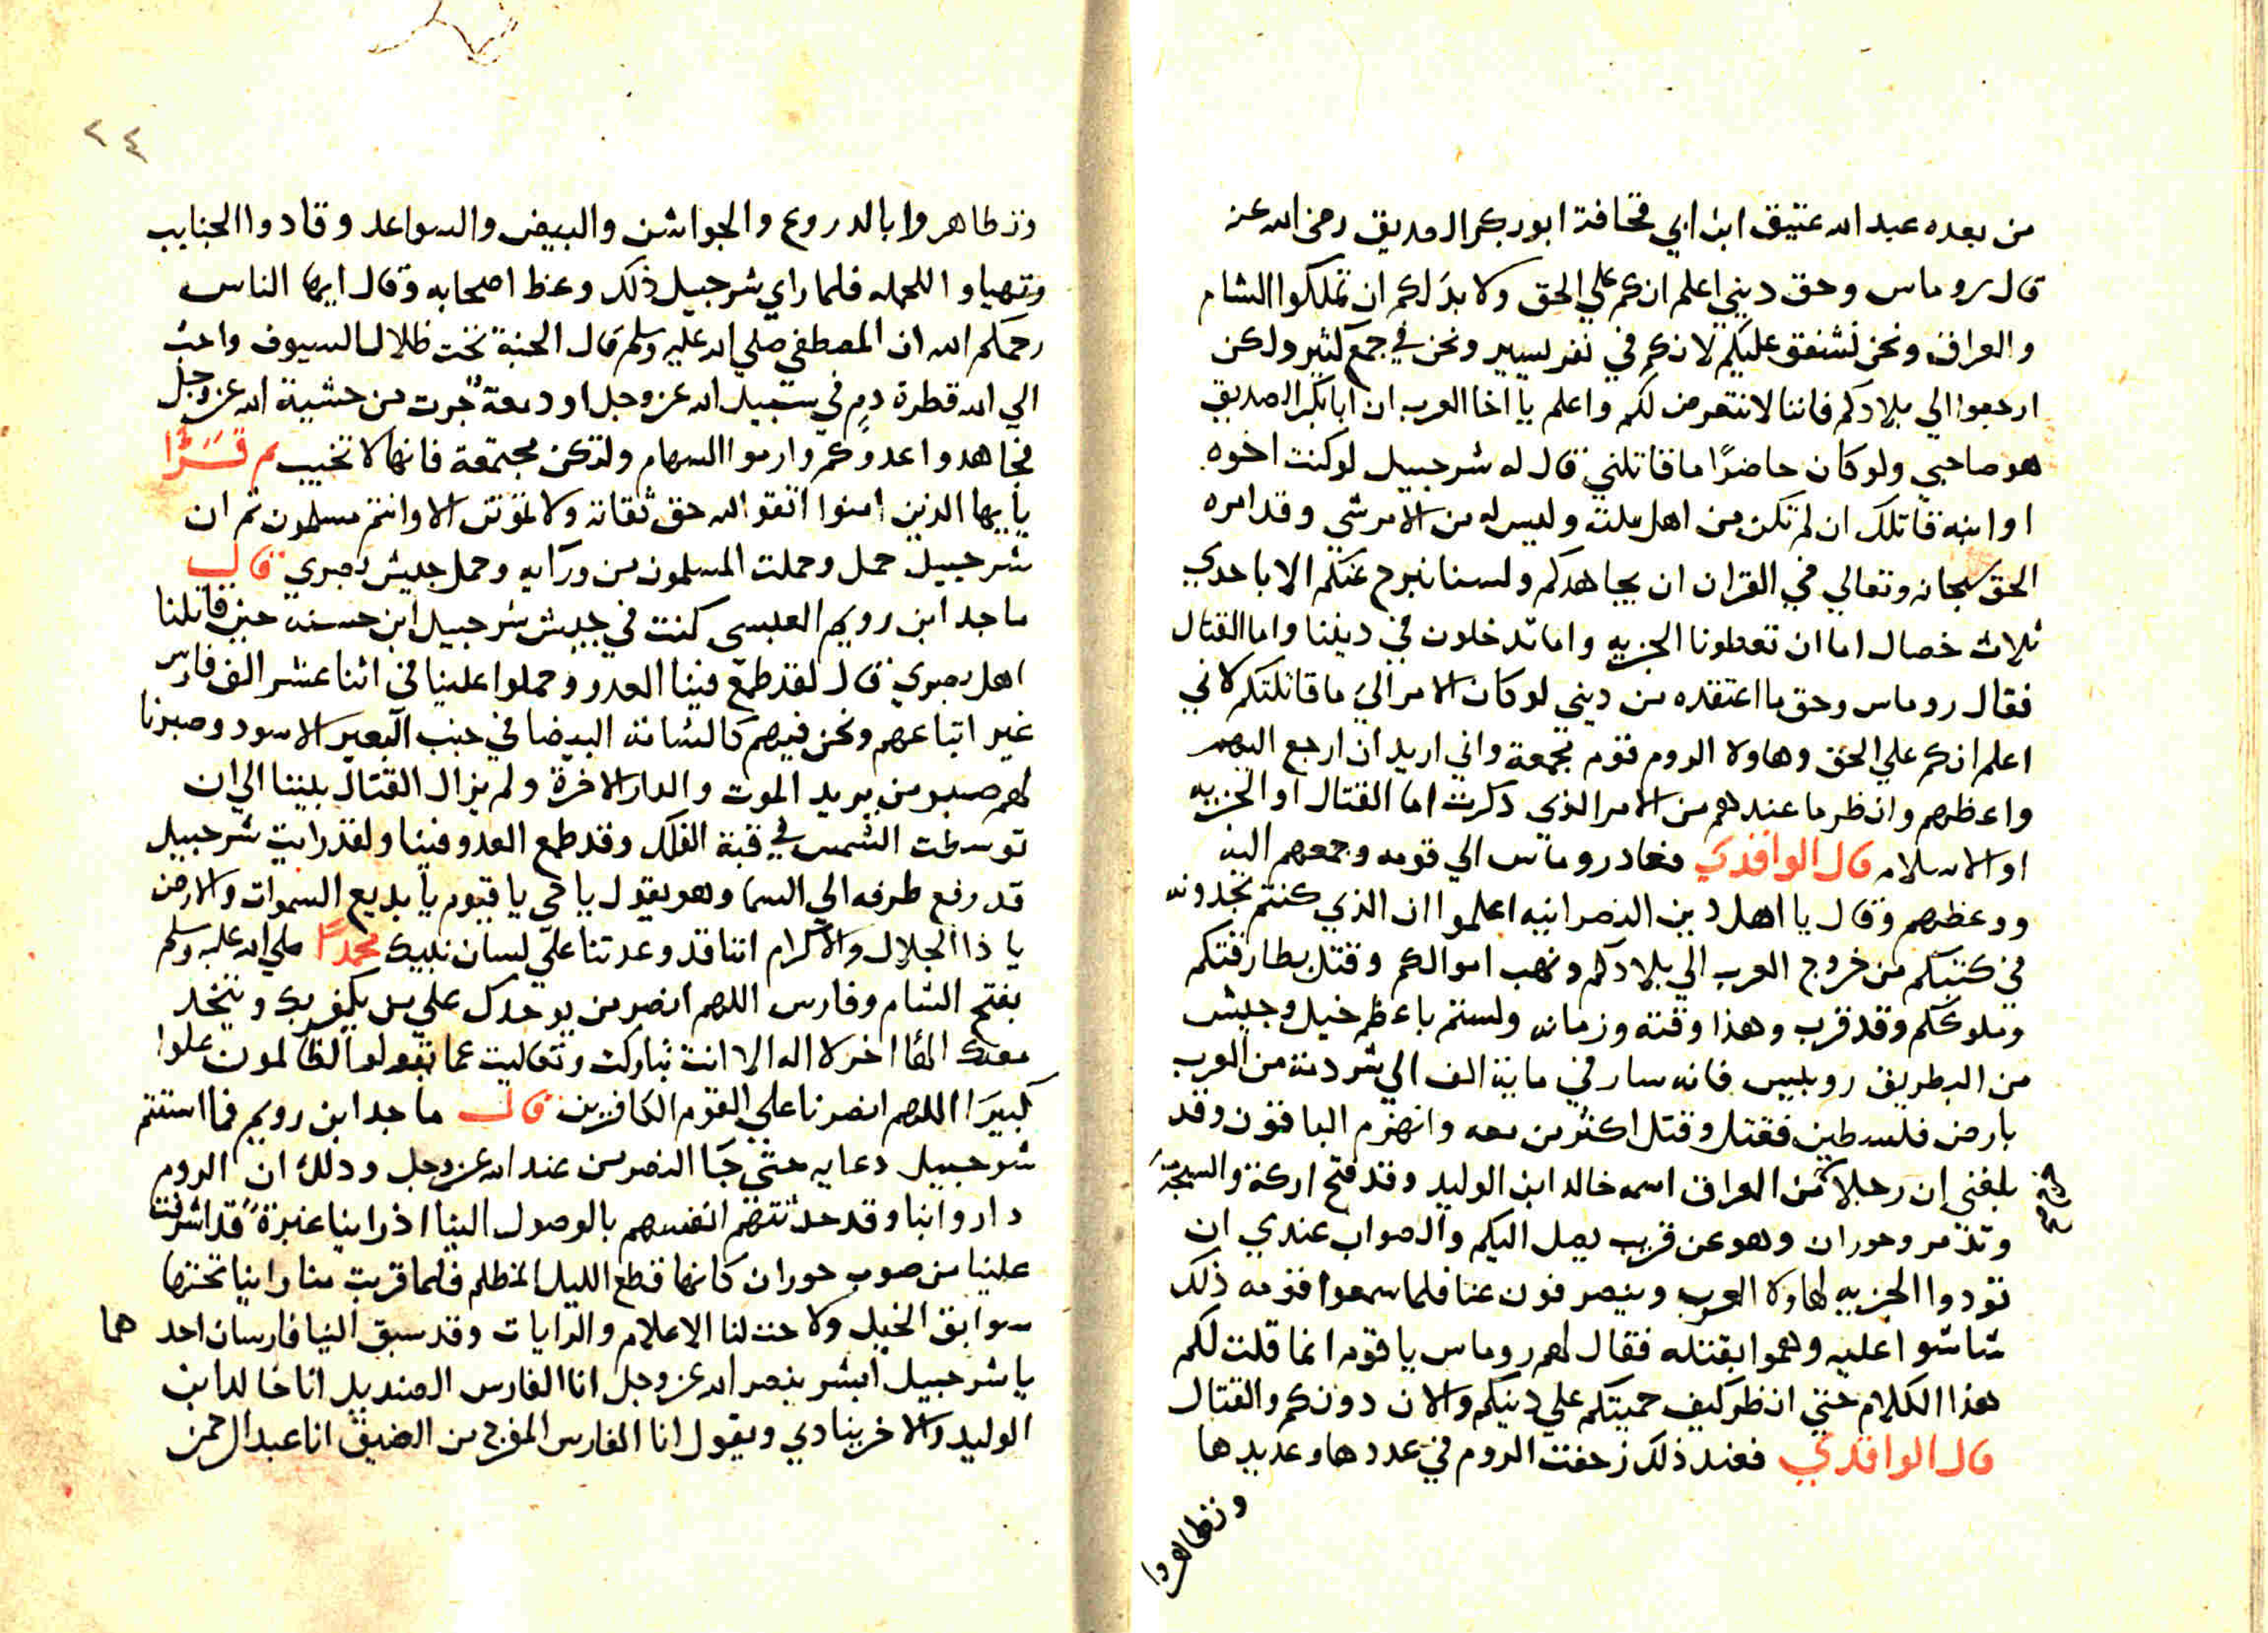 من بعده عبد الله عتيق ابن ابي قحافة ابو بكر الصديق رضى الله عنه
قال روماس وحق ديني اعلم انكم علي الحق ولا بد لكم ان تملكوا الشام
والعراق ونحن نشفق عليكم لانكم في نفر يسير ونحن في جمع كثير ولكن
ارجعوا الي بلادكم فاننا لا نتعرض لكم واعلم يا اخا العرب ان ابا بكر الصديق
هو صاحبي ولو كان حاضرًا ما قاتلني قال له شرحبيل لو كنت اخوه
او ابنه قاتلك ان لم تكن من اهل ملته وليس له من الامر شي وقد امره
الحق سبحانه وتعالي في القران ان يجاهدكم ولسنا نبرح عنكم الا باحدي
ثلاث خصال اما ان تعطونا الجزيه واما تدخلون في ديننا واما القتال
فقال روماس وحق ما اعتقده من ديني لو كان الامر الي ما قاتلتكم لاني
اعلم انكم علي الحق وهاولا الروم قوم مجمعة واني اريد ان ارجع اليهم
واعظهم وانظر ما عندهم من الامر الذي ذكرت اما القتال او الجزيه
او الاسلام قال الواقدي فعاد روماس الي قومه وجمعهم اليه
ووعظهم وقال يا اهل دين النصرانيه اعلموا ان الذي كنتم تجدونه
في كتبكم من خروج العرب الي بلادكم ونهب اموالكم وقتل بطارقتكم
وملوككم وقد قرب وهذا وقته وزمانه ولستم باعظم خيل وجيش
من البطريق روبيس فانه سار في ماية الف الي شردمة من العرب
بارض فلسطين فقتل وقتل اكثر من معه وانهزم الباقون وقد
بلغني ان رجلا من العراق اسمه خالد ابن الوليد وقد فتح اركة والسخنة
وتدمر وحوران وهو عن قريب يصل اليكم والصواب عندي ان
تودوا الجزيه لهاولا العرب وينصرفون عنا فلما سمعوا قومه ذلك
شاشوا عليه وهموا بقتله فقال لهم روماس يا قوم انما قلت لكم
هذا الكلام حتي انظر كيف حميتكم علي دينكم والان دونكم والقتال
قال الواقدي فعند ذلك زحفت الروم في عددها وعديدها
وتظاهروا
٢٤
وتظاهروا بالدروع والجواشن والبيض والسواعد وقادوا الجنايب
وتهياو اللحمله فلما راي شرحبيل ذلك وعظ اصحابه وقال ايها الناس
رحمكم الله ان المصطفي صلي الله عليه وسلم قال الجنة تحت ظلال السيوف واحب
الي الله قطرة دم في سبيل الله عز وجل او دمعة جرت من خشية الله عز وجل
فجاهدوا عدوكم وارموا السهام ولتكن مجتمعة فانها لا تخيب ثم قرا
يايها الذين امنوا اتقوا الله حق تقاته ولا تموتن الا وانتم مسلمون ثم ان
شرحبيل حمل وحملت المسلمون من ورايه وحمل جيش بصري قال
ماجد ابن رويم العبسي كنت في جيش شرحبيل ابن حسنه حين قاتلنا
اهل بصري قال لقد طمع فينا العدو وحملوا علينا في اثنا عشر الف فارس
غير اتباعهم ونحن فيهم كالشامة البيضا في جنب البعير الاسود وصبرنا
لهم صبر من يريد الموت والدار الاخرة ولم يزال القتال بيننا الي ان
توسطت الشمس في قبة الفلك وقد طمع العدو فينا ولقد رايت شرحبيل
قد رفع طرفه الي السما وهو يقول يا حي يا قيوم يا بديع السموات والارض
يا ذا الجلال والاكرام اننا قد وعدتنا علي لسان نبيك محمدًا صلي الله عليه وسلم
بفتح الشام وفارس اللهم انصر من يوحدك علي من يكفر بك ويتخذ
معك الها اخر لا اله الا انت تباركت وتعاليت عما تقولوا الظالمون علوا
كبيرا اللهم انصرنا علي القوم الكافرين قال ماجد ابن رويم فما استتم
شرحبيل دعايه حتي جا النصر من عند الله عز وجل وذلك ان الروم
داروا بنا وقد حدثتهم انفسهم بالوصول الينا اذ راينا غبرة قد اشرفت
علينا من صوب حوران كانها قطع الليل المظلم فلما قربت منا راينا تحتها
سوابق الخيل ولاحت لنا الاعلام والرايات وقد سبق الينا فارسان احدهما
يا شرحبيل ابشر بنصر الله عز وجل انا الفارس الصنديد انا خالد ابن
الوليد والاخر ينادي ويقول انا الفارس المفرج من الضيق انا عبد الرحمن